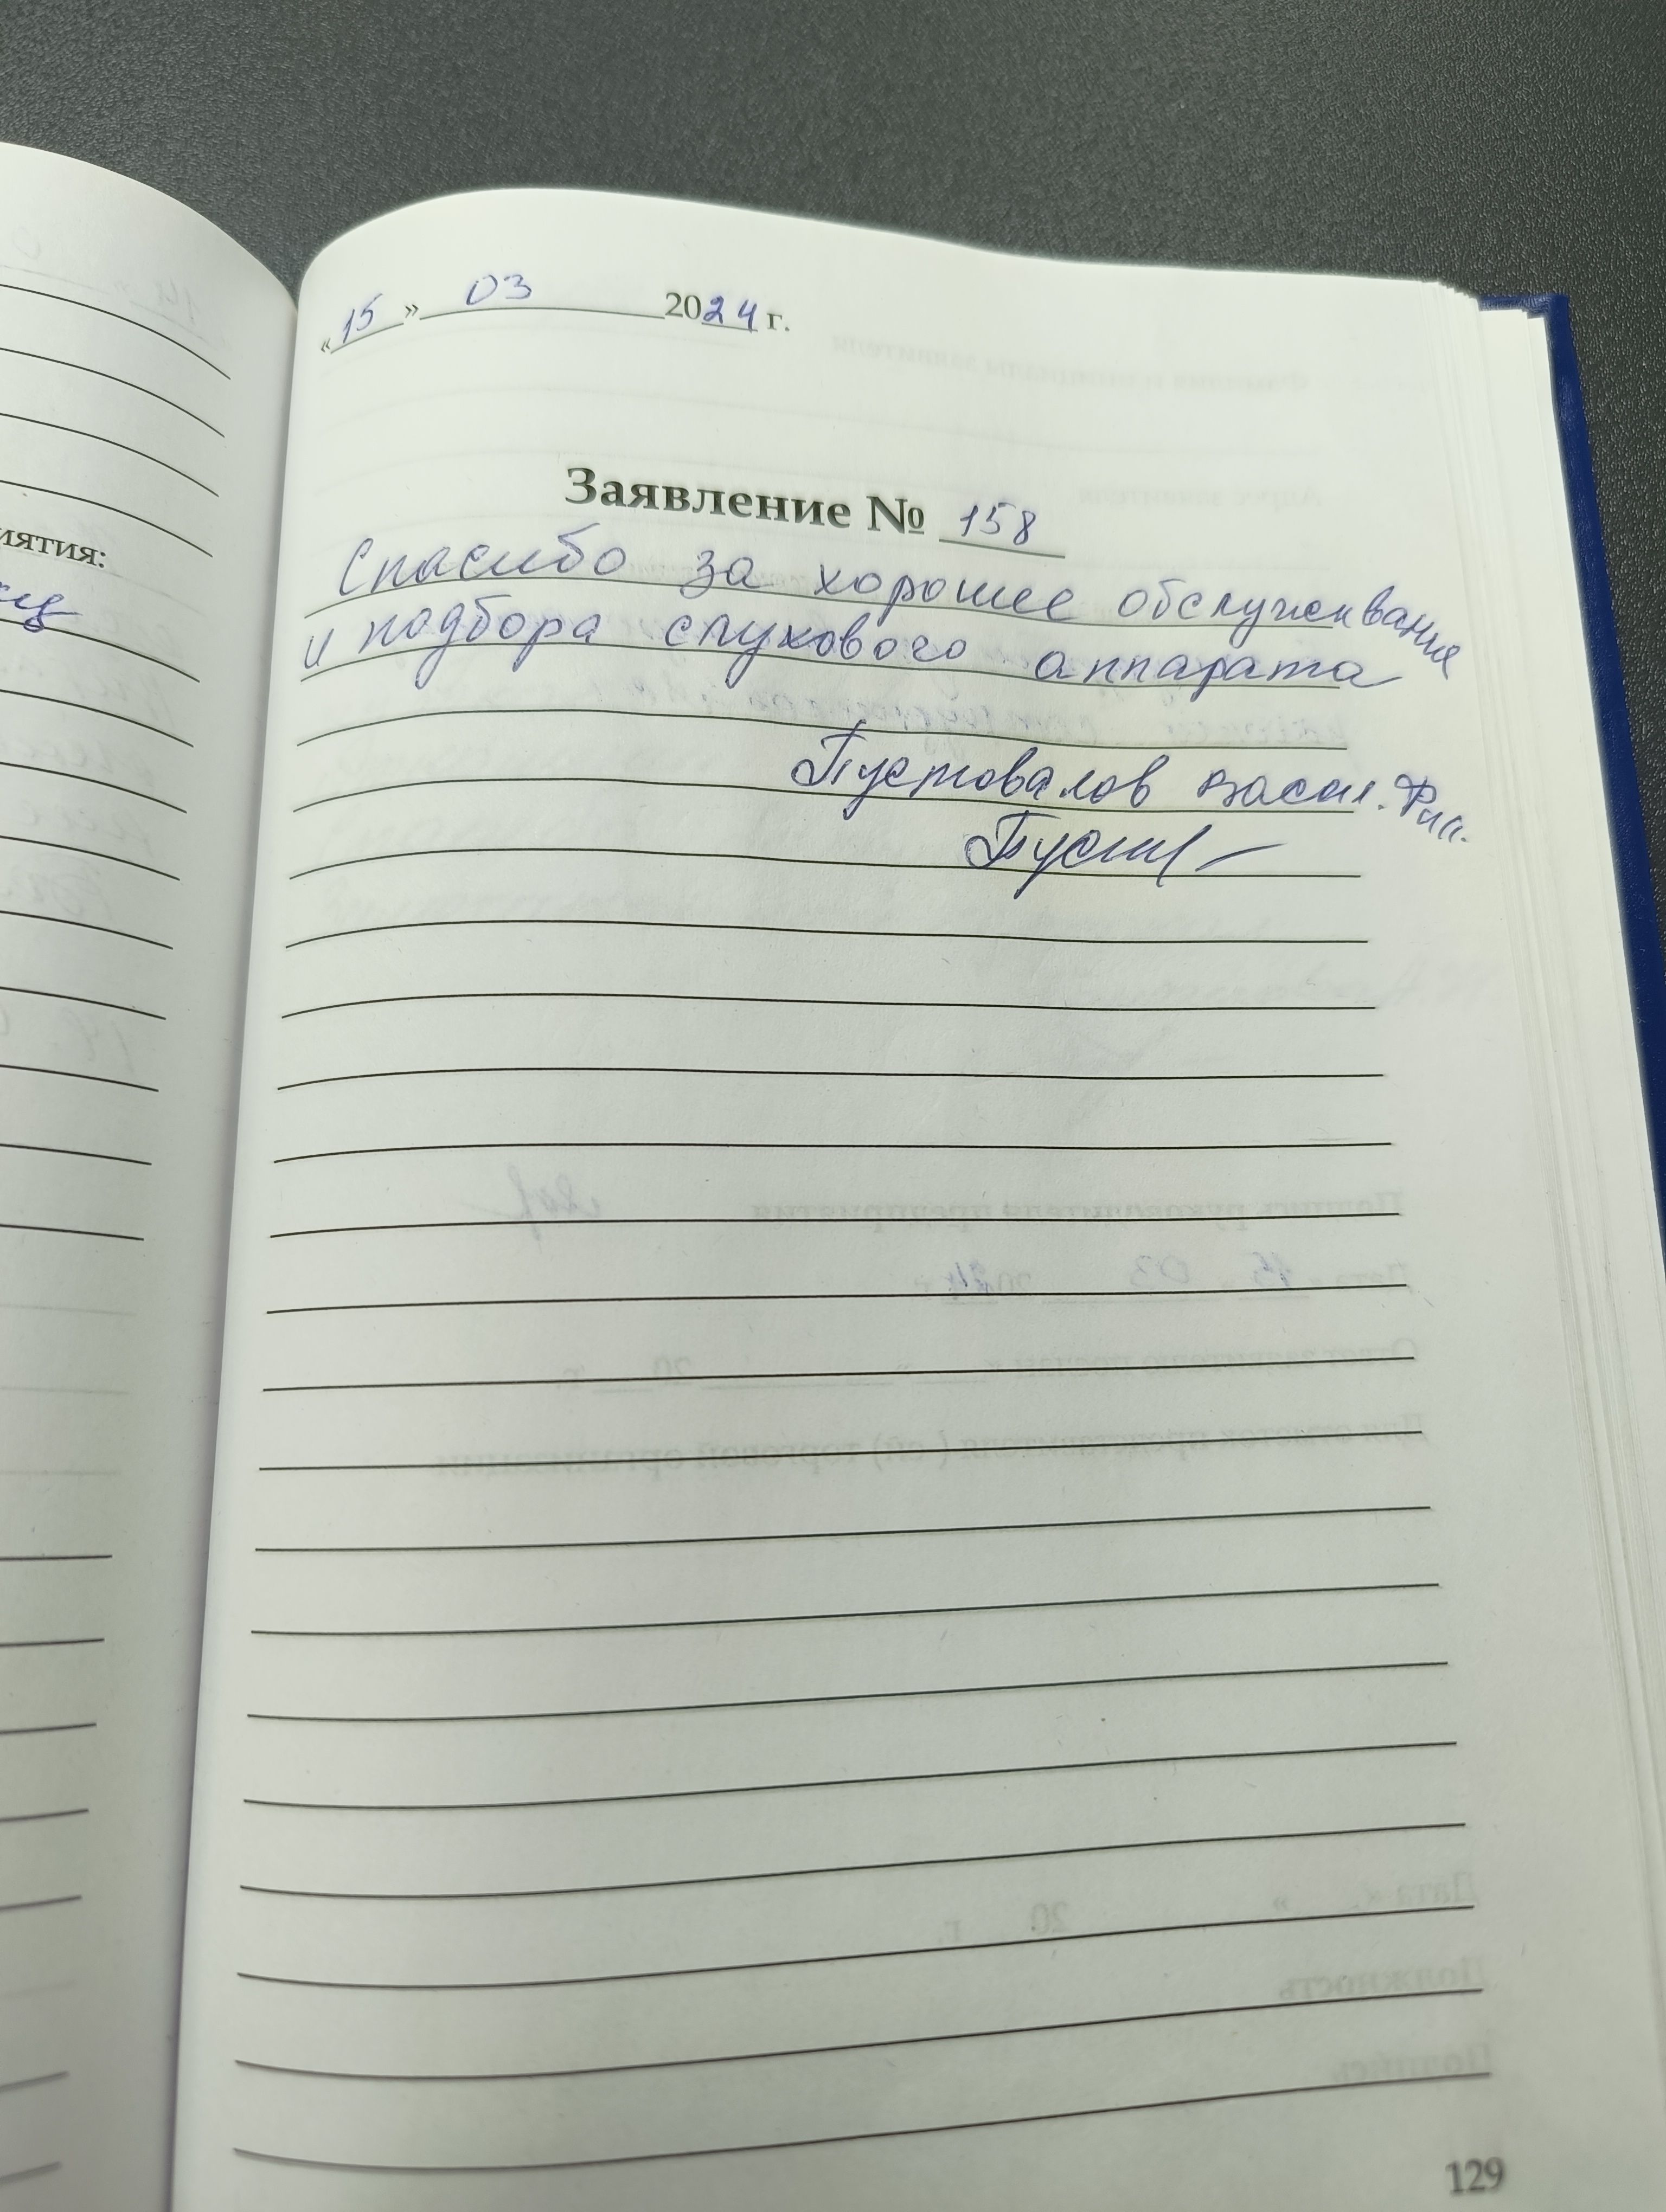 «15» 03 2024 г.
Заявление № 158
Спасибо за хорошее обслуживания
и подбора слухового аппарата
Пустовалов Васил. Фил.
иятия:
129